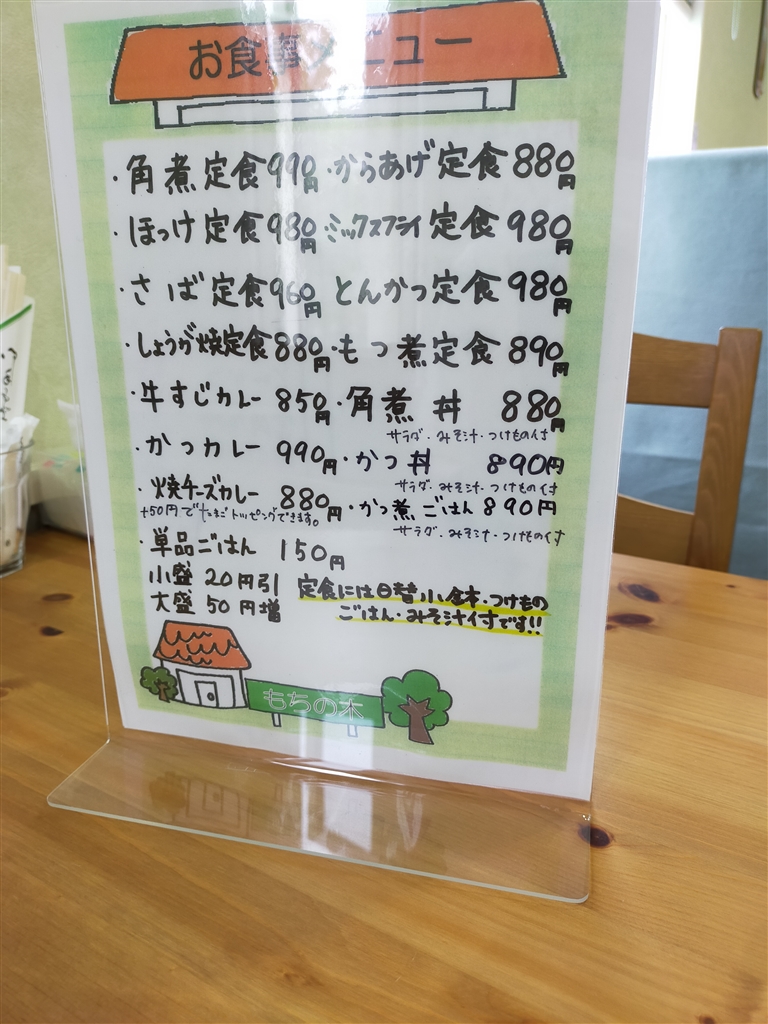 お食事メニュー
・角煮定食990円 ・からあげ定食880円
・ほっけ定食980円 ・ミックスフライ定食980円
・さば定食960円 とんかつ定食980円
・しょうが焼定食880円 ・もつ煮定食890円
・牛すじカレー 850円 ・角煮丼 880円
サラダ・みそ汁・つけもの付
・かつカレー 990円 ・かつ丼 890円
サラダ・みそ汁・つけもの付
・焼チーズカレー 880円 ・かつ煮ごはん 890円
+50円でたまごトッピングできます。
サラダ・みそ汁・つけもの付
・単品ごはん 150円
小盛 20円引
大盛 50円増
定食には日替小鉢・つけもの
ごはん・みそ汁付です!!
もちの木